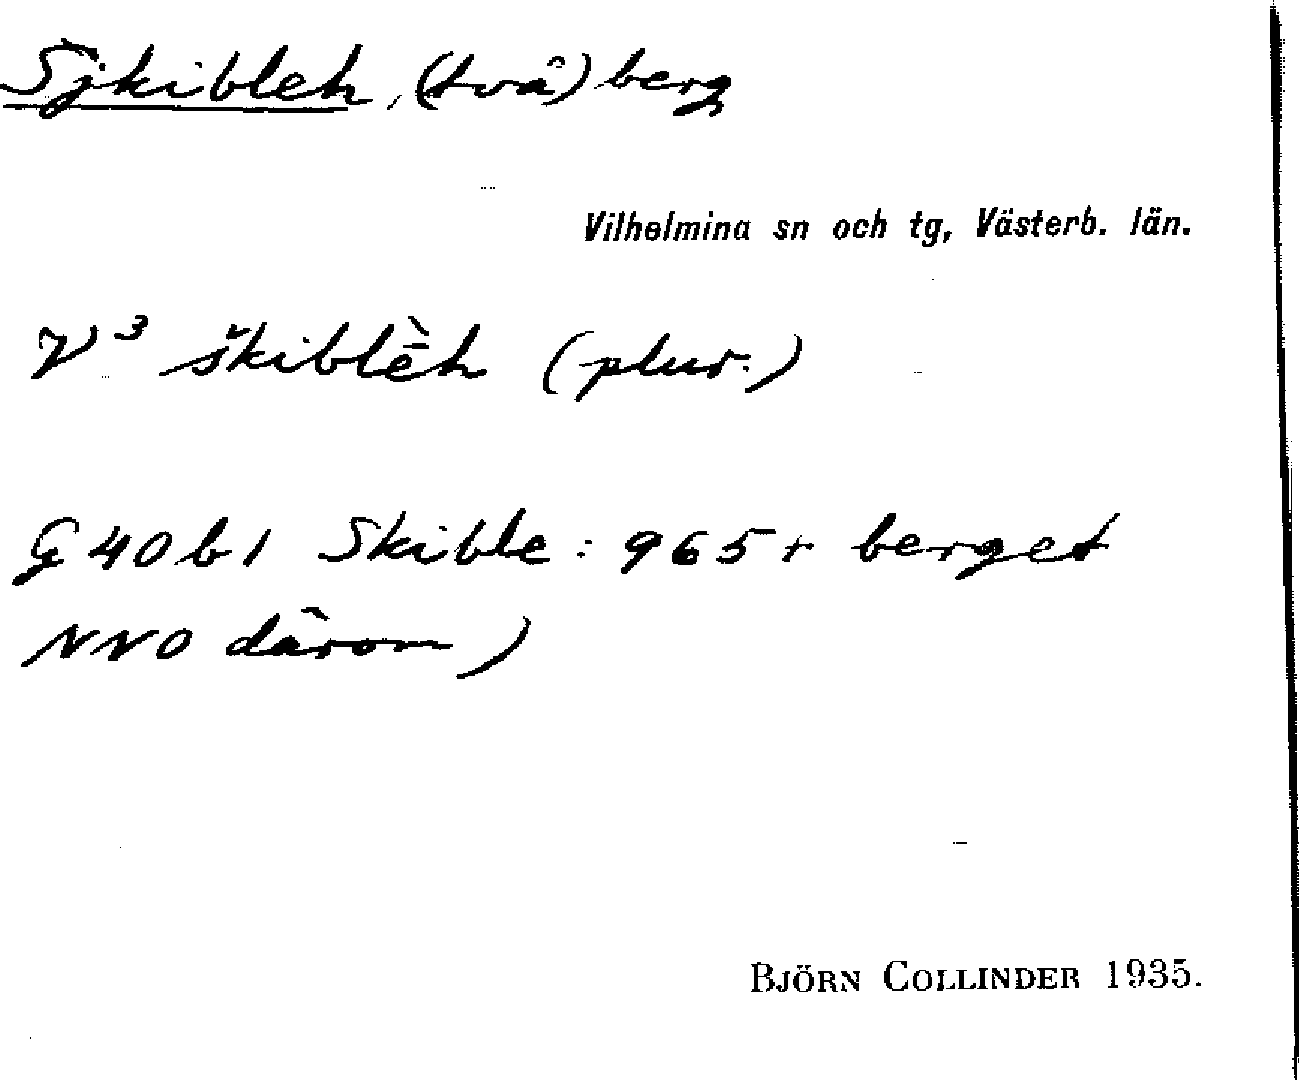 Sjkibleh, (två) berg
Vilhelmina sn och tg, Västerb. län.
V³ škiblèh (plur.)
G 40 b 1 Skible: 965 + berget
NNO därom)
BJÖRN COLLINDER 1935.